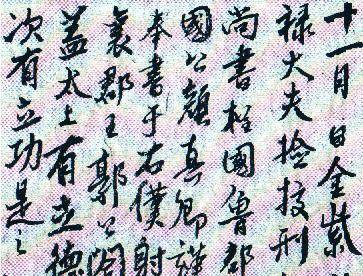 十一月日金紫
祿大夫檢校刑
尚書柱國魯郡
國公顏真卿謹
奉書于右僕射
襄郡王郭公閤
蓋太上有立德
次有立功是之